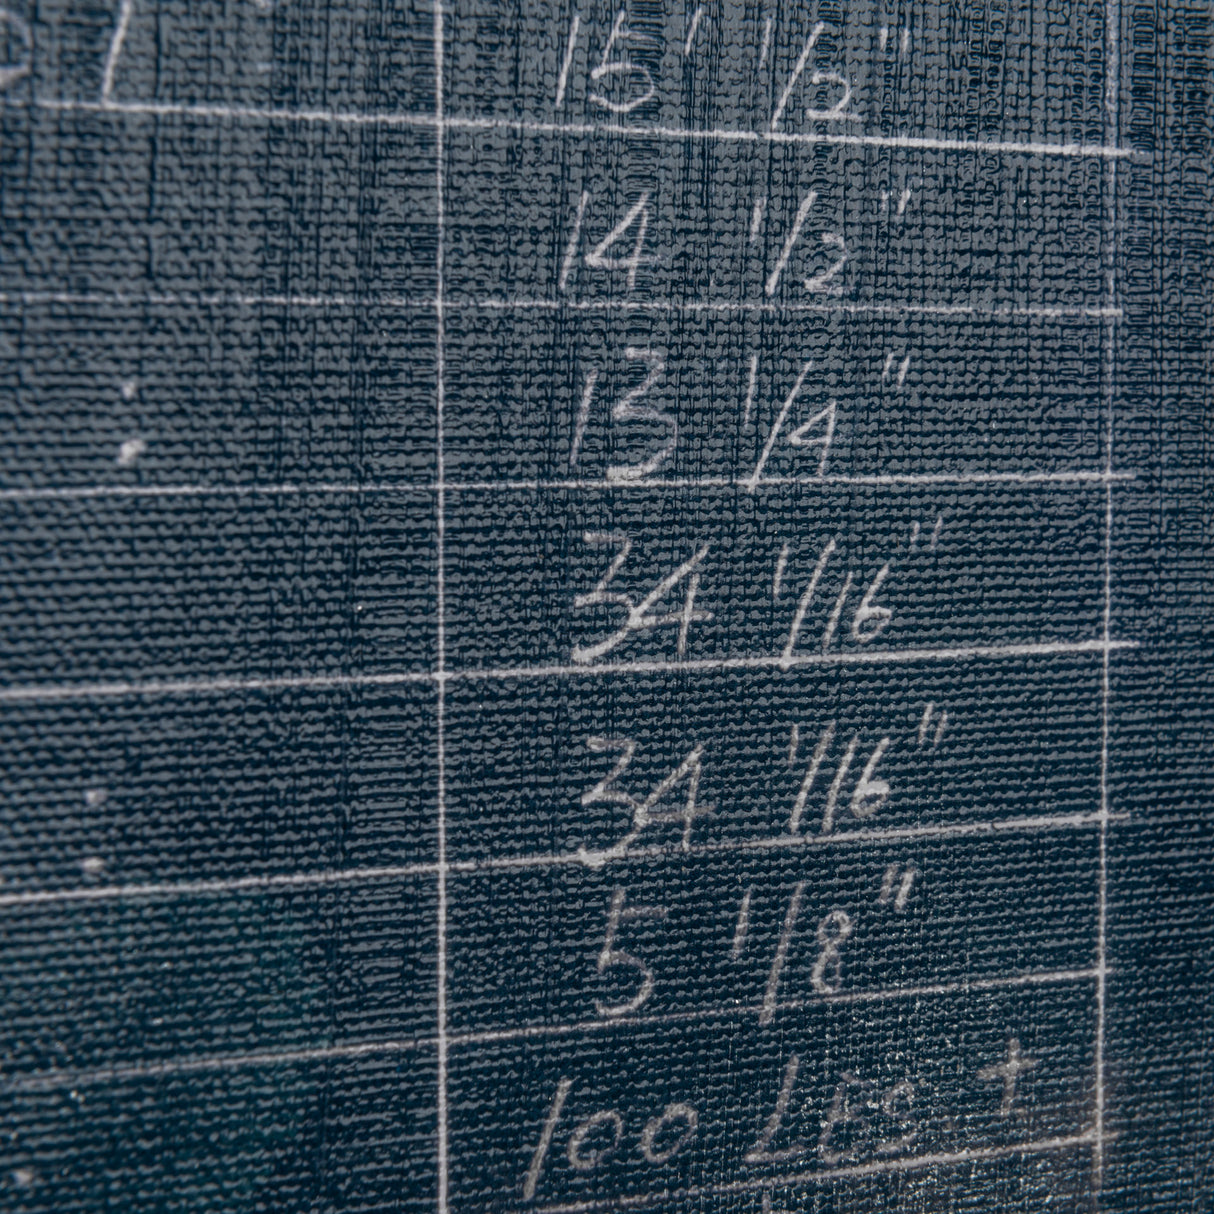 15' 1/2"
14 1/2"
13 1/4"
34 1/16"
34 1/16"
5 1/8"
100 LBS +